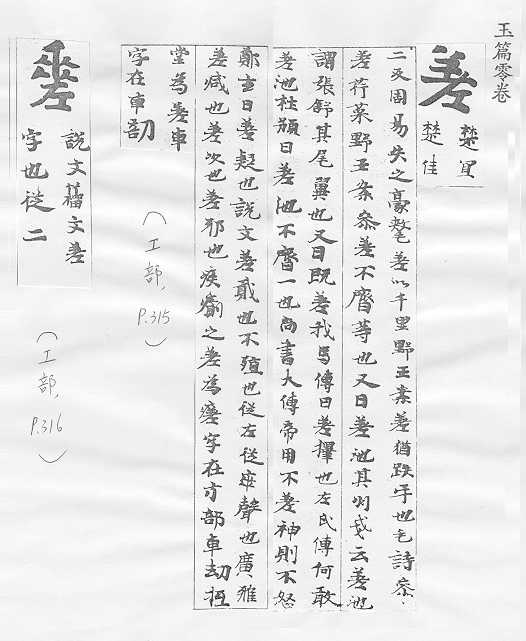 玉篇零卷
差
楚宜
楚佳
二反周易失之豪氂差以千里野王案差猶跌乎也毛詩叅〻
差荇菜野王案叅差不齊等也又曰差池其羽戔云差池
謂張舒其尾翼也又曰既差我馬傳曰差擇也左氏傳何敢
差池杜預曰差池不齊一也尚書大傳帝用不差神則不怒
鄭玄曰差疑也說文差貳也不殖也從左從𠂹聲也廣雅
差減也差次也差邪也疾瘉之差為瘥字在疒部車劫抂
堂為差車
字在車部
(工部,
P.315
)
說文籀文差
字也從二
(工部,
P.316
)